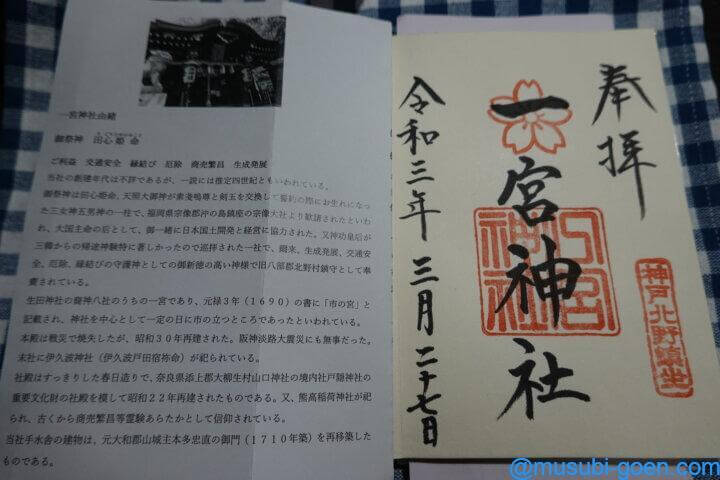 一宮神社由緒
御祭神 田心姫命
ご利益 交通安全 縁結び 厄除 商売繁昌 生成発展
当社の創建年代は不詳であるが、一説には推定四世紀ともいわれている。
御祭神は田心姫命、天照大御神が素盞嗚尊と剣玉を交換して誓約の際にお生れになっ
た三女神五男神の一柱で、福岡県宗像郡沖の島鎮座の宗像大社より歓請されたといわ
れ、大国主命の后として、御一緒に日本国土開発と経営に協力された。又神功皇后が
三韓からの帰途神験特に著しかったので巡拝された一社で、爾来、生成発展、交通安
全、厄除、縁結びの守護神としての御新徳の高い神様で旧八部郡北野村鎮守として奉
齋されている。
生田神社の裔神八社のうちの一宮であり、元禄3年(1690)の書に「市の宮」と
記載され、神社を中心として一定の日に市の立つところであったといわれている。
本殿は戦災で焼失したが、昭和30年再建された。阪神淡路大震災にも無事だった。
末社に伊久波神社(伊久波戸田宿祢命)が祀られている。
社殿はすっきりした春日造りで、奈良県添上郡大柳生村山口神社の境内社戸隠神社の
重要文化財の社殿を模して昭和22年再建されたものである。又、熊高稲荷神社が祀
られ、古くから商売繁昌等霊験あらたかとして信仰されている。
当社手水舎の建物は、元大和郡山城主本多忠直の御門(1710年築)を再移築した
ものである。
奉拝
一宮神社
神戸北野鎮坐
令和三年三月二十七日
@musubi-goen.com